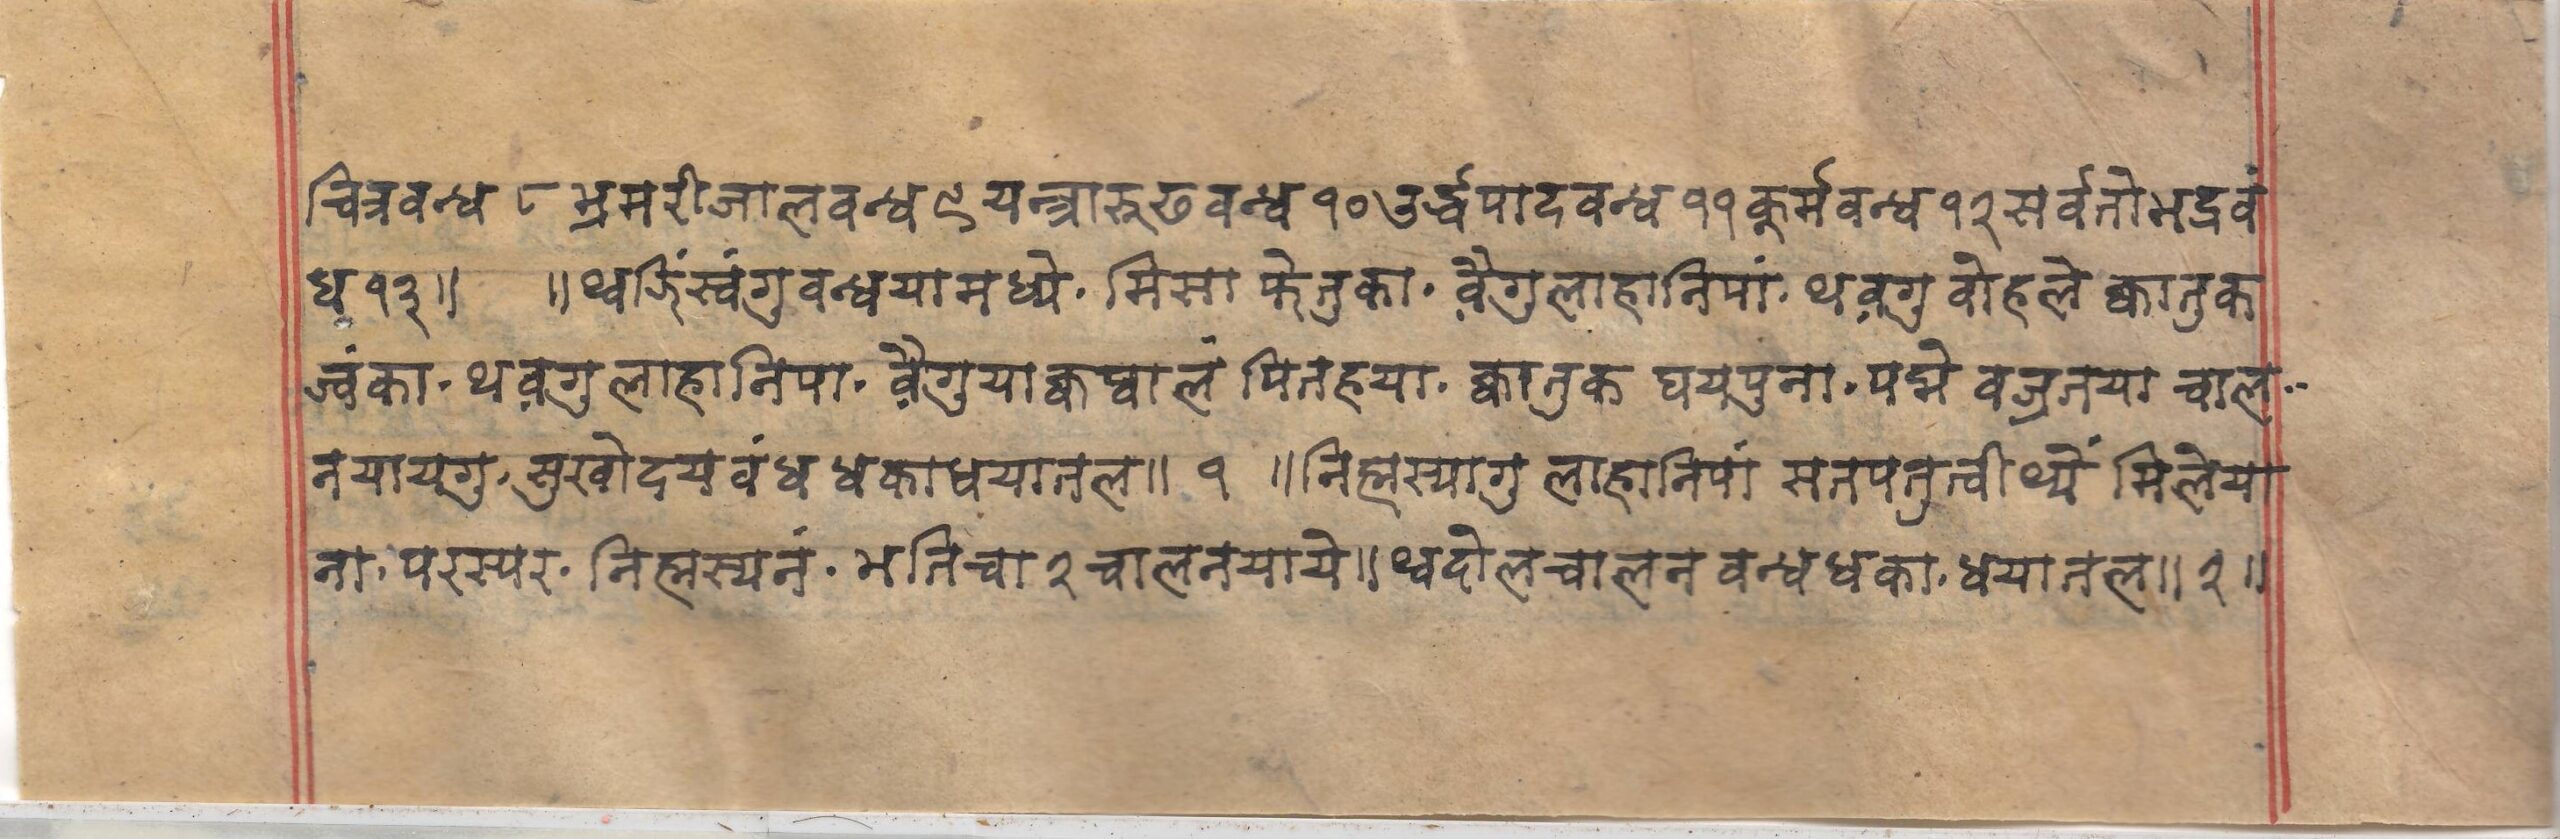 चित्रवन्ध ८ भ्रमरीजालवन्ध ९ यन्त्रारूढवन्ध १० उर्द्ध्वपादवन्ध ११ कूर्मवन्ध १२ सर्वतोभद्रवं
ध १३॥ ॥थ्वझिंस्वंगु वन्धयामध्ये. मिसा फेतुका. व़ैगु लाहानिपां. थव़गु वोहले क्वातुक
ज्वंका. थव़गु लाहानिपा. व़ैगुया पितहया. क्वातुक घयपुना. पद्मे वज्रतया चाल--
नयायगु. सुखोदय वंध धका धयातल॥ १ ॥निह्मस्यागु लाहानिपां मिलेया
ना. परस्पर. निह्मस्यनं. भतिचा २ चालनयाये॥थ्व दोलचालन वन्ध धका. धयातल॥२॥